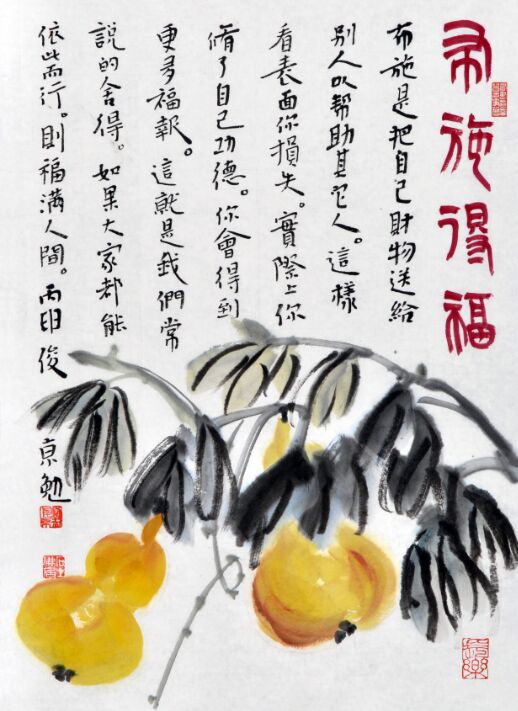 布施得福
布施是把自己財物送給
別人以帮助其它人。這樣
看表面你損失。實際上你
脩了自己功德。你會得到
更多福報。這就是我們常
說的舍得。如果大家都能
依此而行。則福滿人間。丙申俊
京勉